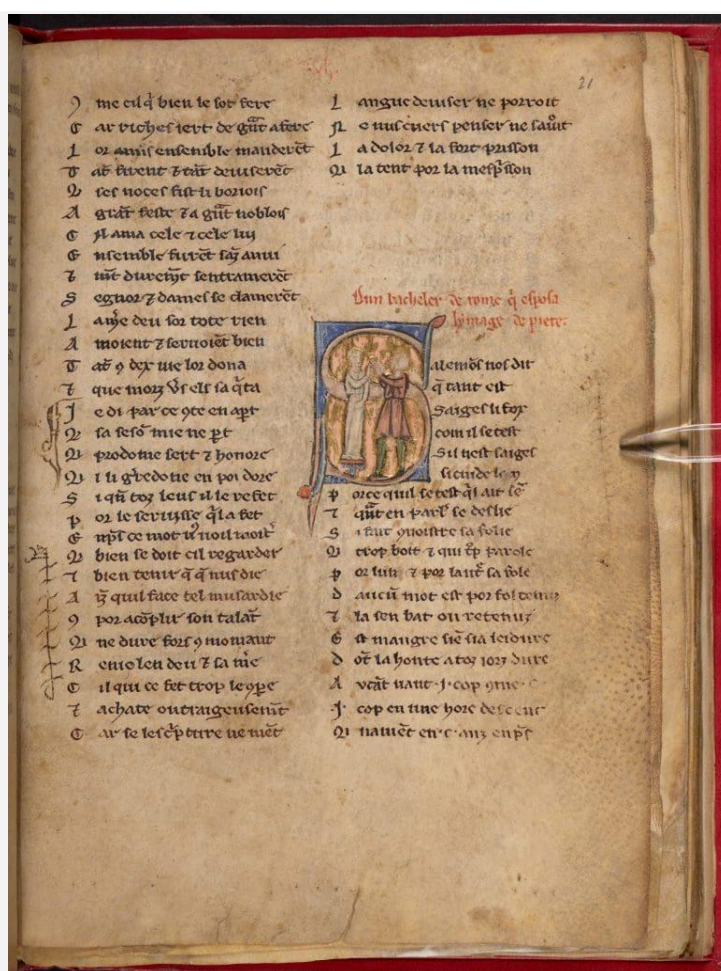 21
me cil q̃ bien le sot fere
C ar riches iert de gñt afere
L or amis ensemble manderẽt
T at firent & tãt deviserẽt
Q ses noces fist li boriois
A grãt feste & a gñt noblois
C ama cele & cele lui
E nsemble furẽt sãz anui
& mlt duremt̃ sentramerẽt
S egnor & dames se clamerẽt
L a mẽ deu sor tote rien
A moient & servoiẽt bien
T at 9 dex vie lor dona
& que morz els sa q̃ta
J e di par ce 9te en apt
Q sa sesõ mie ne pt
Q prodome sert & honore
Q i li gredone en poi dore
S i qñ toz leus il le refet
P or le servisse q̃ la fet
E np̃s ce mot voil
Q bien se doit cil regarder
& bien tenir q̃ q̃ nus die
A quil face tel musardie
9 por acõplir son talãt
Q ne dure fors 9 momant
R enie len deu & sa mẽ
C il qui ce fet trop le 9pe
& achate outraigeusemt̃
C ar se lescp̃ture ne mẽt
L angue deviser ne porroit
N e nus cuers penser ne
L a dolor & la fort prisson
Q la tent por la mesp̃ison
Dun bacheler de rome q̃ esposa
lymage de piere.
S alemõs nos dit
q̃ tant est
Saiges li fox
com il se test
S il nest saiges
si cuide len
P orce quil se test q̃l ait sẽ
& qũt en parl se deslie
S i faut 9noistre sa folie
Q trop boit & qui tp̃ parole
P or lun & por lautr̃ safole
D aucũ mot est por fol tenuz
& la sen bat ou retenuz
E st maugre siẽ sia leidure
D õt la honte a toz iorz dure
A vcãt vant .j. cop
.j. cop en une hore
Q naviẽt en .c. anz enp̃s